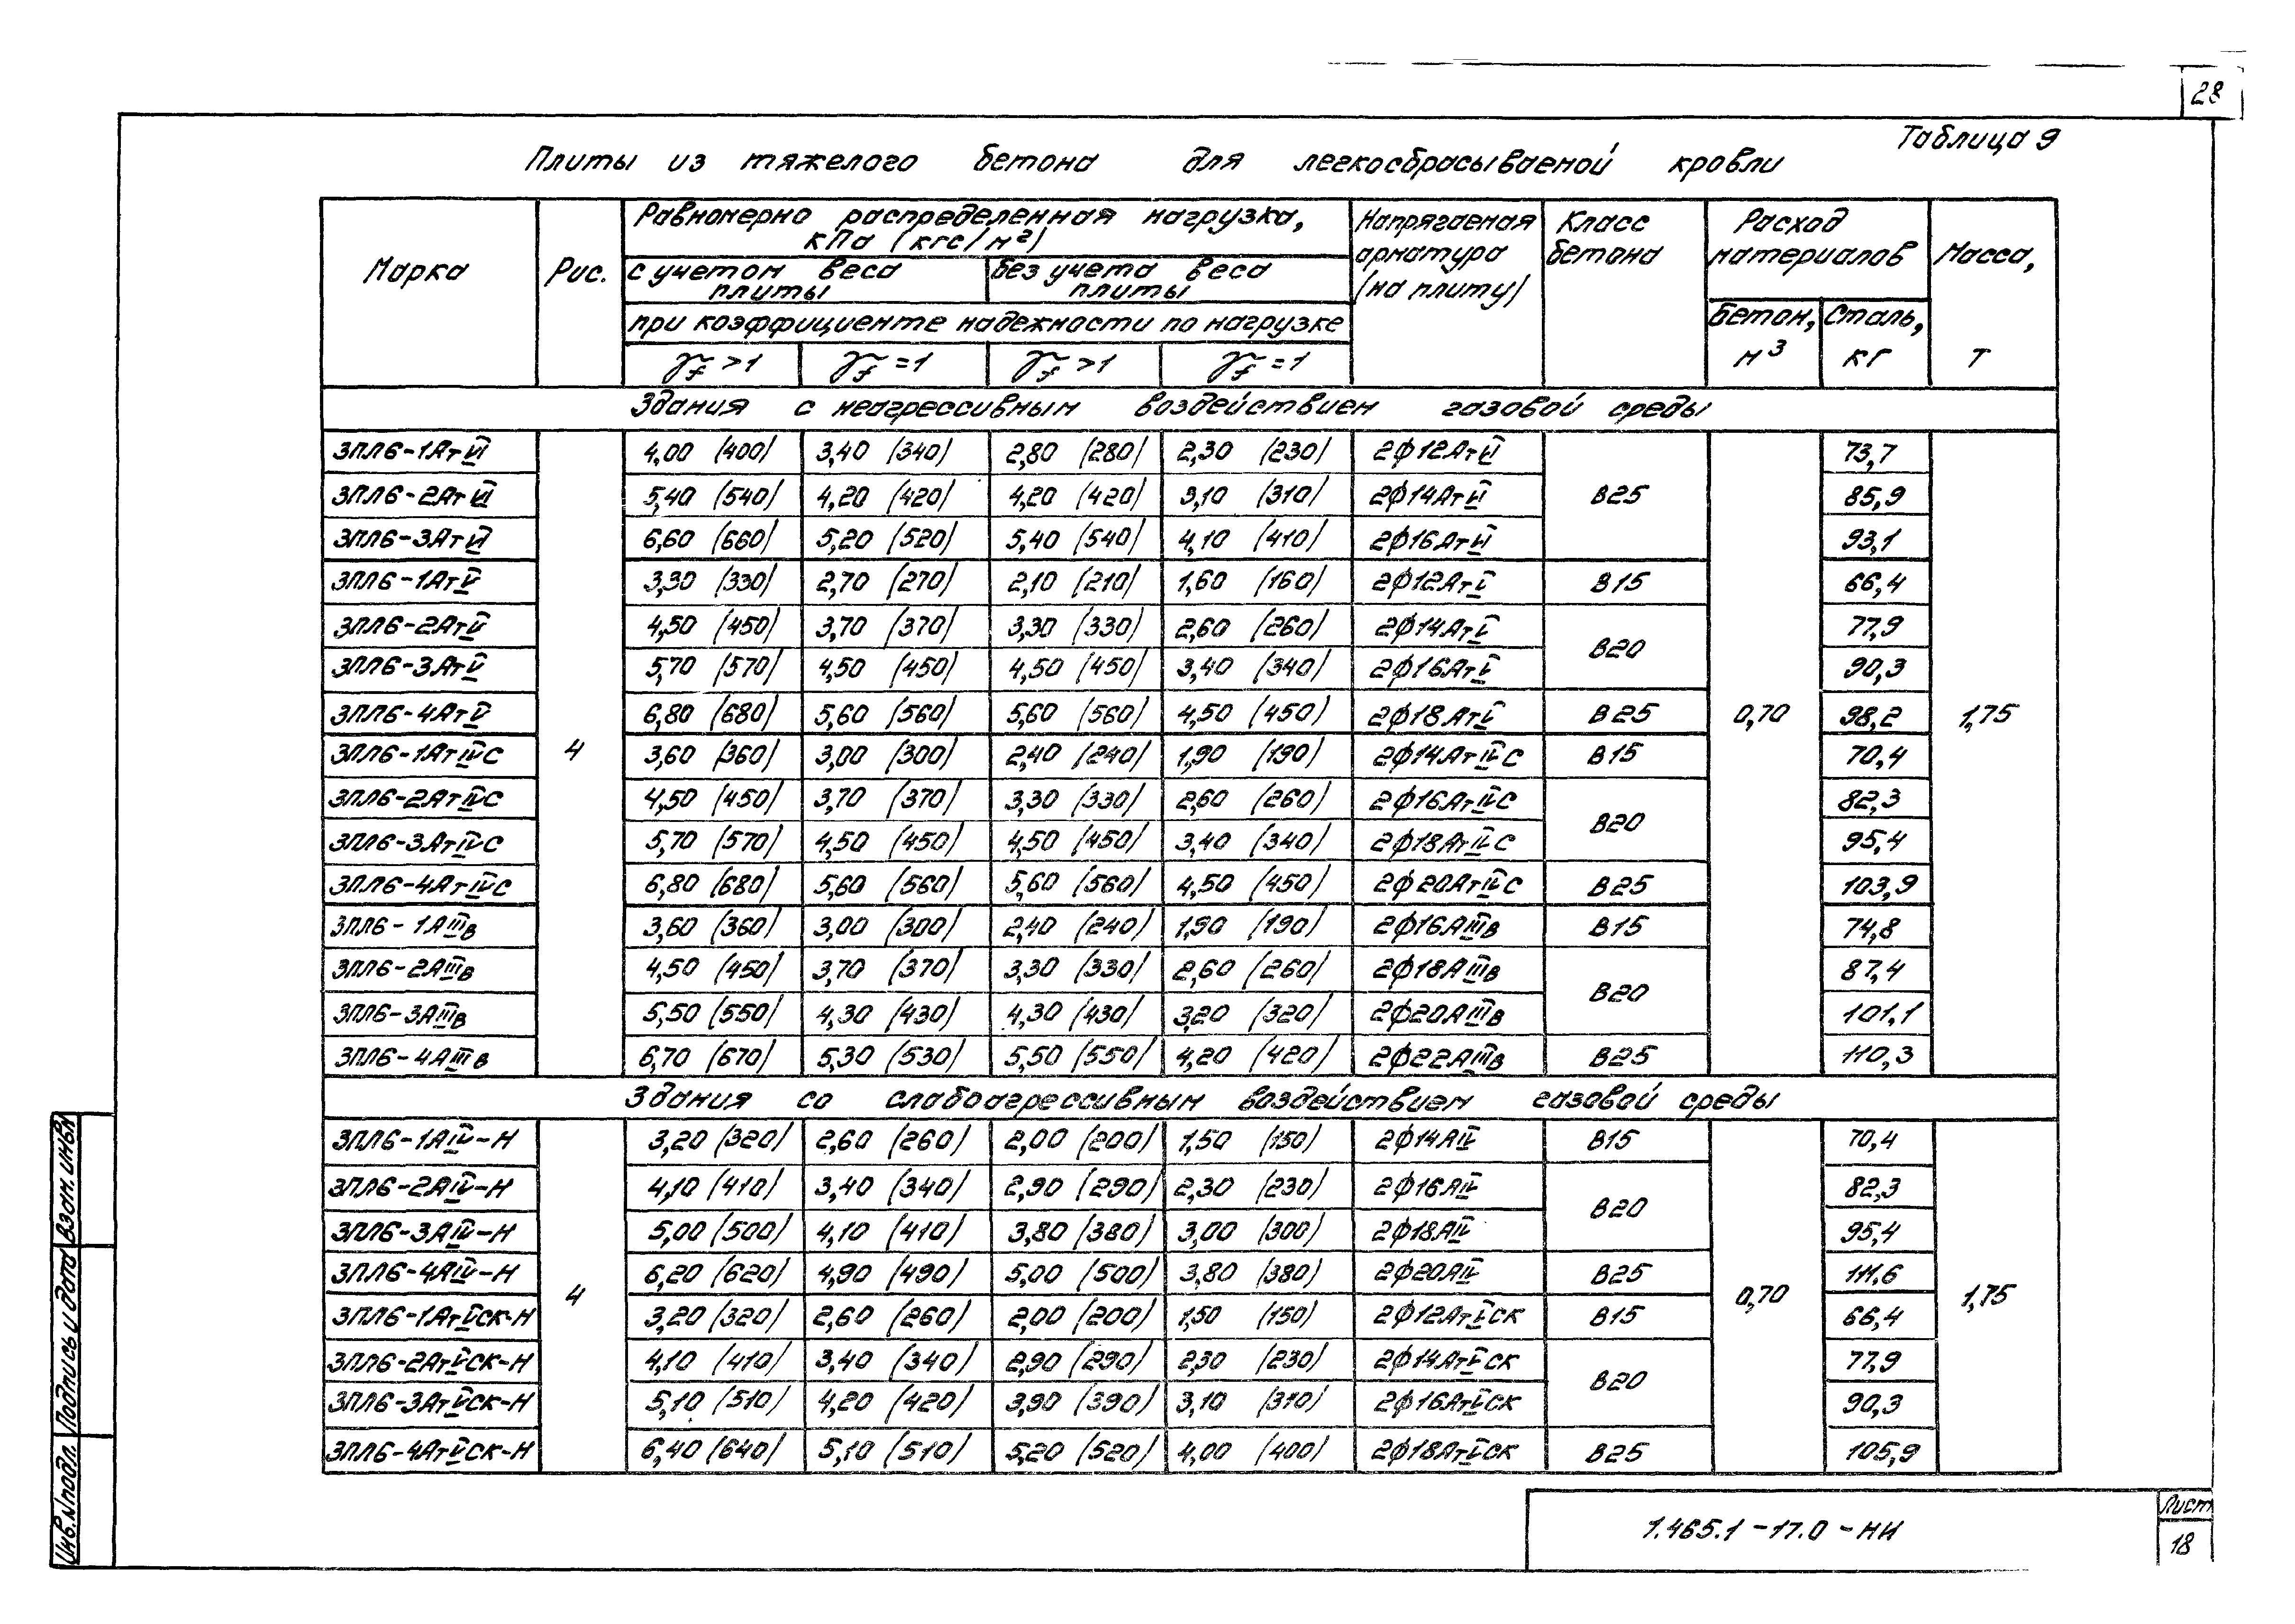 28
Таблица 9
Плиты из тяжелого бетона для легкосбрасываемой кровли
Марка
Рис.
Равномерно распределенная нагрузка, кПа (кгс/м²)
с учетом веса плиты
без учета веса плиты
при коэффициенте надежности по нагрузке
γf >1 γf =1 γf >1 γf =1
Напрягаемая арматура (на плиту)
Класс бетона
Расход материалов
Бетон, м³
Сталь, кг
Масса, т
Здания с неагрессивным воздействием газовой среды
3ПЛ6-1АтVI 4,00 (400) 3,40 (340) 2,80 (280) 2,30 (230) 2ф12АтVI 73,7
3ПЛ6-2АтVI 5,40 (540) 4,20 (420) 4,20 (420) 3,10 (310) 2ф14АтVI В25 85,9
3ПЛ6-3АтVI 6,60 (660) 5,20 (520) 5,40 (540) 4,10 (410) 2ф16АтVI 93,1
3ПЛ6-1АтV 3,30 (330) 2,70 (270) 2,10 (210) 1,60 (160) 2ф12АтV В15 66,4
3ПЛ6-2АтV 4,50 (450) 3,70 (370) 3,30 (330) 2,60 (260) 2ф14АтV В20 77,9
3ПЛ6-3АтV 5,70 (570) 4,50 (450) 4,50 (450) 3,40 (340) 2ф16АтV 90,3
3ПЛ6-4АтV 6,80 (680) 5,60 (560) 5,60 (560) 4,50 (450) 2ф18АтV В25 0,70 98,2 1,75
3ПЛ6-1АтIVС 4 3,60 (360) 3,00 (300) 2,40 (240) 1,90 (190) 2ф14АтIVС В15 70,4
3ПЛ6-2АтIVС 4,50 (450) 3,70 (370) 3,30 (330) 2,60 (260) 2ф16АтIVС В20 82,3
3ПЛ6-3АтIVС 5,70 (570) 4,50 (450) 4,50 (450) 3,40 (340) 2ф18АтIVС 95,4
3ПЛ6-4АтIVС 6,80 (680) 5,60 (560) 5,60 (560) 4,50 (450) 2ф20АтIVС В25 103,9
3ПЛ6-1АIIIв 3,60 (360) 3,00 (300) 2,40 (240) 1,90 (190) 2ф16АIIIв В15 74,8
3ПЛ6-2АIIIв 4,50 (450) 3,70 (370) 3,30 (330) 2,60 (260) 2ф18АIIIв В20 87,4
3ПЛ6-3АIIIв 5,50 (550) 4,30 (430) 4,30 (430) 3,20 (320) 2ф20АIIIв 101,1
3ПЛ6-4АIIIв 6,70 (670) 5,30 (530) 5,50 (550) 4,20 (420) 2ф22АIIIв В25 110,3
Здания со слабоагрессивным воздействием газовой среды
3ПЛ6-1АIV-Н 3,20 (320) 2,60 (260) 2,00 (200) 1,50 (150) 2ф14АIV В15 70,4
3ПЛ6-2АIV-Н 4,10 (410) 3,40 (340) 2,90 (290) 2,30 (230) 2ф16АIV В20 82,3
3ПЛ6-3АIV-Н 5,00 (500) 4,10 (410) 3,80 (380) 3,00 (300) 2ф18АIV 95,4
3ПЛ6-4АIV-Н 4 6,20 (620) 4,90 (490) 5,00 (500) 3,80 (380) 2ф20АIV В25 0,70 111,6 1,75
3ПЛ6-1АтVСК-Н 3,20 (320) 2,60 (260) 2,00 (200) 1,50 (150) 2ф12АтVСК В15 66,4
3ПЛ6-2АтVСК-Н 4,10 (410) 3,40 (340) 2,90 (290) 2,30 (230) 2ф14АтVСК В20 77,9
3ПЛ6-3АтVСК-Н 5,10 (510) 4,20 (420) 3,90 (390) 3,10 (310) 2ф16АтVСК 90,3
3ПЛ6-4АтVСК-Н 6,40 (640) 5,10 (510) 5,20 (520) 4,00 (400) 2ф18АтVСК В25 105,9
Инв.№подл. Подпись и дата Взам.инв№
1.465.1-17.0-НИ
Лист
18